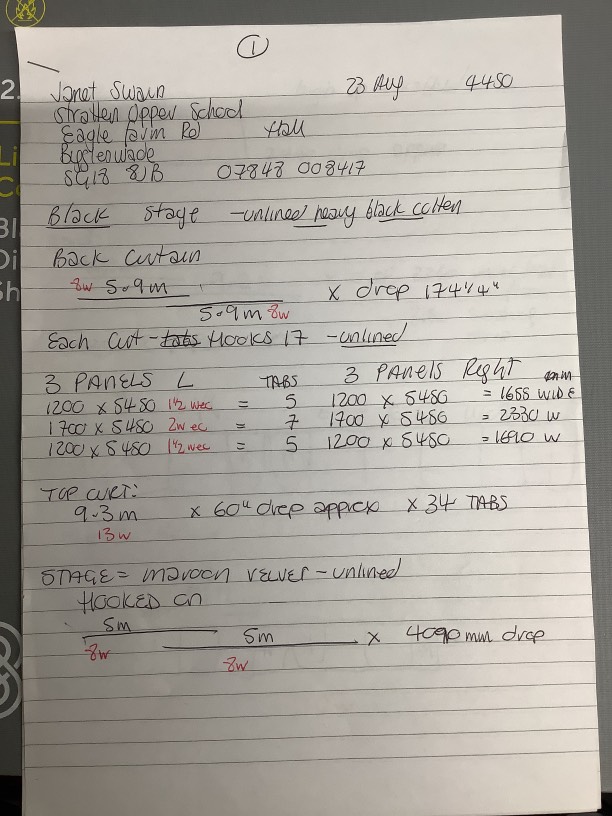 1
Janet Swain 23 Aug 4450
Stratton Upper School
Eagle Farm Rd Hall
Biggleswade
SG18 8JB 07843 008417
Black Stage - unlined heavy black cotton
Back Curtain
8w 5.9m
5.9m 8w x drop 174 1/4"
Each Curt - tabs Hooks 17 - unlined
3 PANELS L TABS 3 PANELS Right
1200 x 5450 1½ w ec = 5 1200 x 5450 = 1655 WIDE
1700 x 5450 2w ec = 7 1700 x 5450 = 2330 W
1200 x 5450 1½ w ec = 5 1200 x 5450 = 1690 W
TOP CURT:
9.3m x 60" drop approx x 34 TABS
13w
STAGE = maroon VELVET - unlined
HOOKED ON
5m
8w
5m x 4090 mm drop
8w